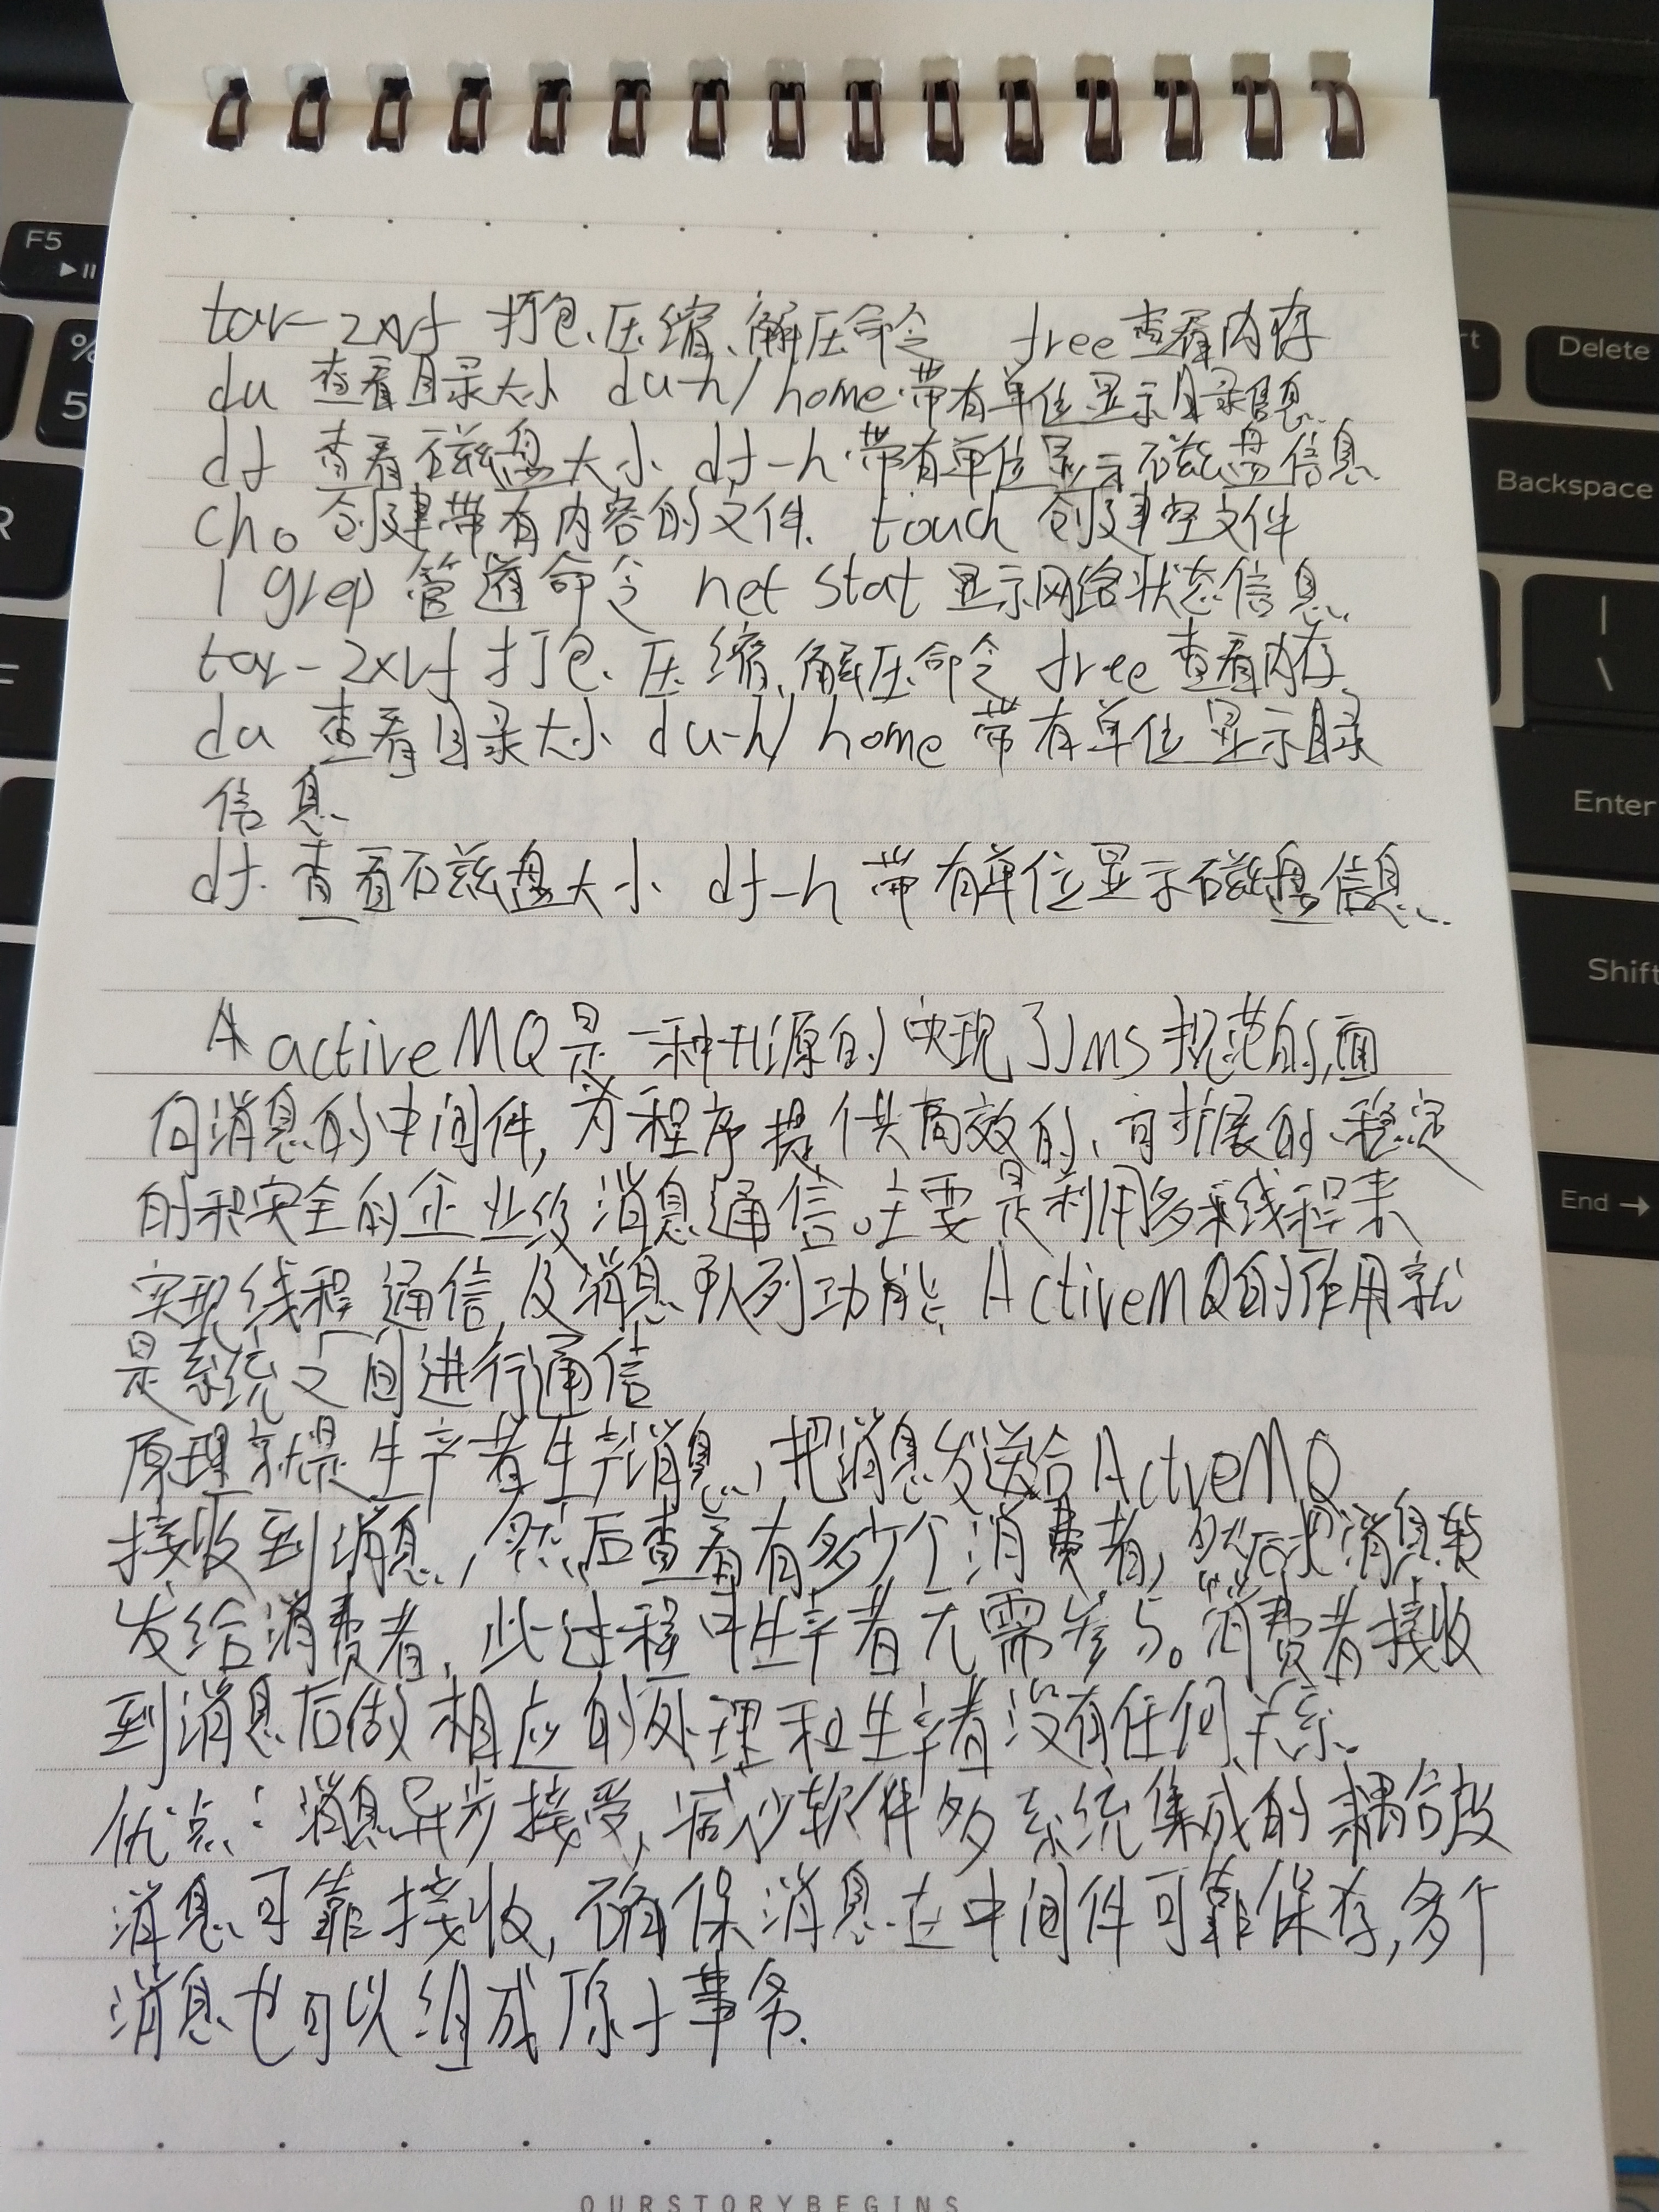 tar-zxvf 打包、压缩、解压命令 free查看内存
du 查看目录大小 du-h/home带有单位显示目录信息
df 查看磁盘大小 df-h 带有单位显示磁盘信息
cho 创建带有内容的文件. touch 创建空文件
| grep 管道命令 net stat 显示网络状态信息
tar-zxvf 打包、压缩、解压命令 free 查看内存
du 查看目录大小 du-h/home 带有单位显示目录
信息
df 查看磁盘大小 df-h 带有单位显示磁盘信息
activeMQ是一种开源的实现了JMS规范的,面
向消息的中间件,为程序提供高效的、可扩展的、稳定
的和安全的企业级消息通信。主要是利用多线程来
实现线程通信及消息队列功能, ActiveMQ的作用就
是系统之间进行通信
原理就是生产者生产消息,把消息发送给ActiveMQ
接收到消息,然后查看有多少个消费者,然后把消息转
发给消费者,此过程中生产者无需参与。消费者接收
到消息后做相应的处理和生产者没有任何关系.
优点:消息异步接受,减少软件多系统集成的耦合度
消息可靠接收,确保消息在中间件可靠保存,多个
消息也可以组成原子事务.
OURSTORYBEGINS
F5
%
5
R
Delete
Backspace
|
\
Enter
Shift
End →